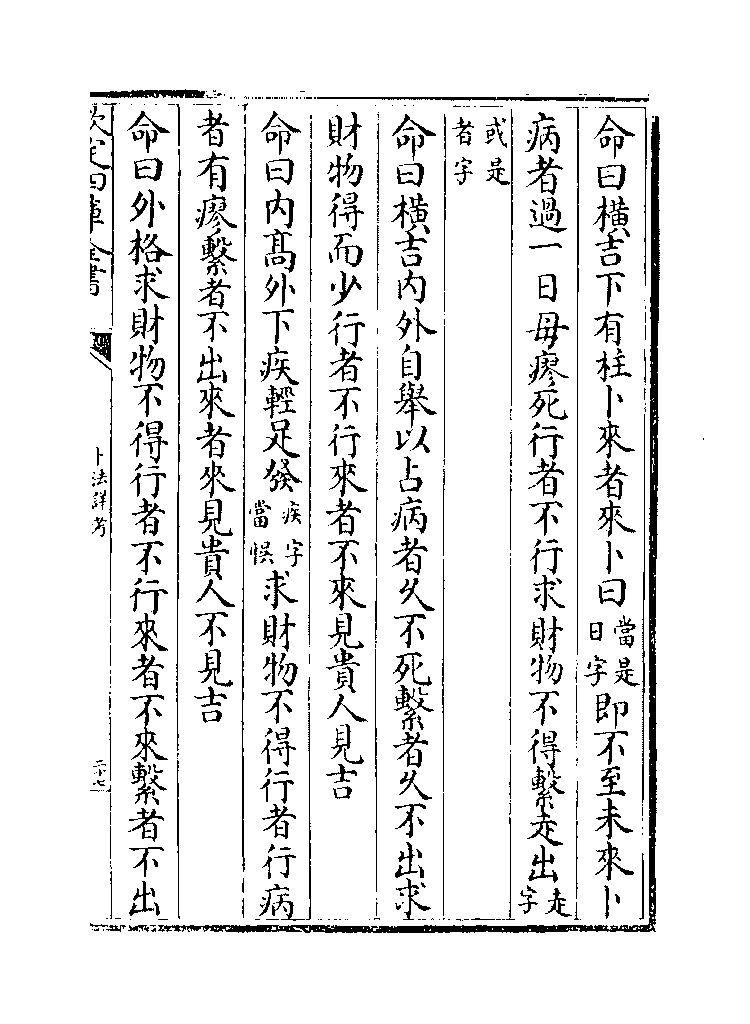 命曰橫吉下有柱卜來者來卜曰當是日字即不至未來卜
病者過一日毋瘳死行者不行求財物不得繫走出走字
或是者字
命曰橫吉内外自舉以占病者久不死繫者久不出求
財物得而少行者不行來者不來見貴人見吉
命曰内髙外下疾輕足發疾字當悮求財物不得行者行病
者有瘳繫者不出來者來見貴人不見吉
命曰外格求財物不得行者不行來者不來繫者不出
欽定四庫全書
卜法詳考
二十七